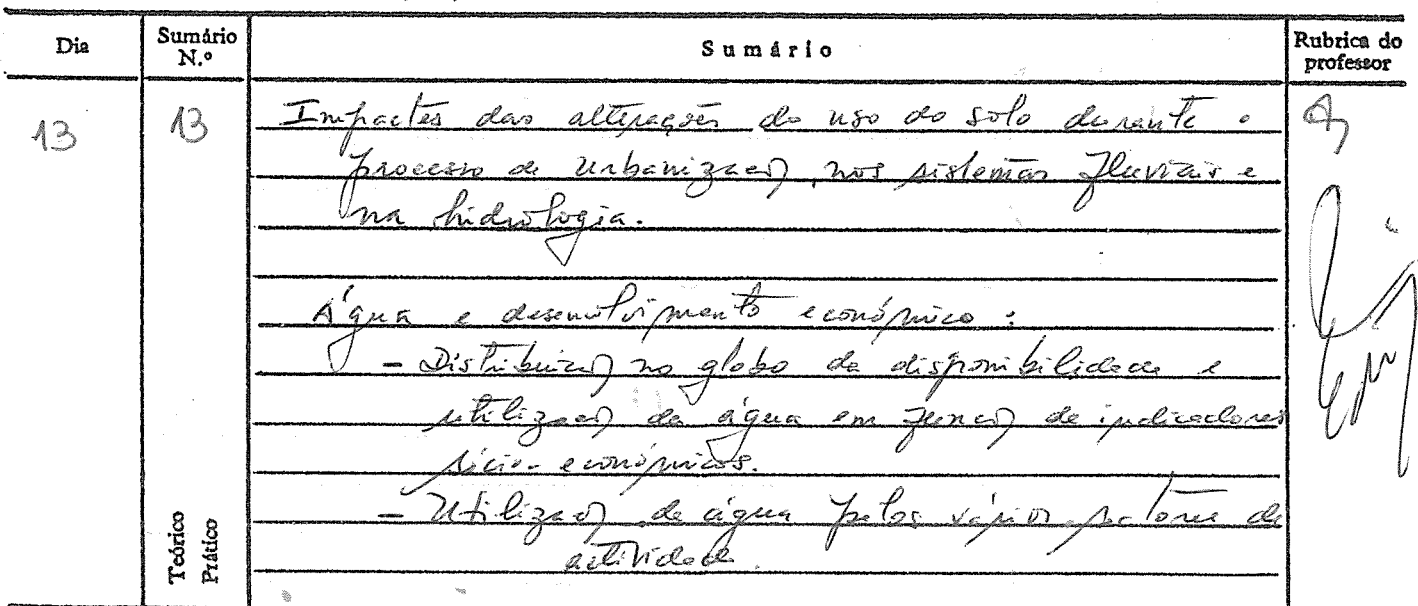 Dia
Sumário N.º
Sumário
Rubrica do professor
13
13
Impactes das alterações do uso do solo durante o
processo de urbanização, nos sistemas fluviais e
na hidrologia.
Água e desenvolvimento económico :
- Distribuição no globo da disponibilidade e
utilização da água em função de indicadores
sócio-económicos.
- Utilização de água pelos vários sectores de
actividade.
Teórico
Prático